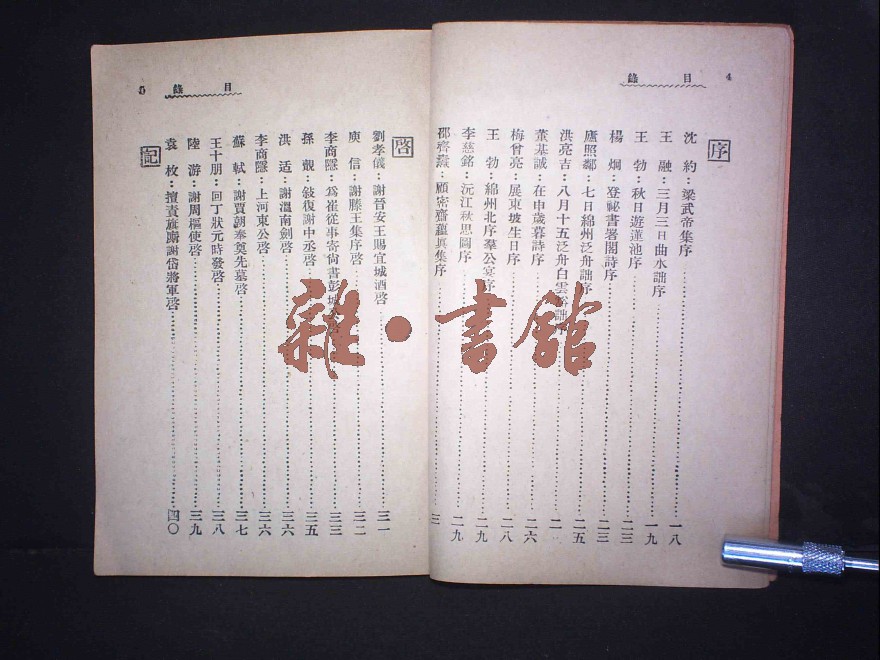 4 目錄
序
沈約：梁武帝集序 一八
王融：三月三日曲水詩序 一九
王勃：秋日遊蓮池序 二三
楊炯：登祕書署閣詩序 二三
盧照鄰：七日綿州泛舟詩序 二五
洪亮吉：八月十五泛舟白雲 詩序
董基誠：在申歲暮詩序 二六
梅曾亮：展東坡生日序 二八
王勃：綿州北序羣公宴序 二九
李慈銘：沅江秋思圖序 二九
邵齊燾：顧密齋蘊眞集序
5 目錄
啓
劉孝儀：謝晉安王賜宜城酒啓 三一
庾信：謝滕王集序啓 三二
李商隱：爲崔從事寄尙書彭城公啓 三三
孫覿：敍復謝中丞啓 三五
洪适：謝溫南劍啓 三六
李商隱：上河東公啓 三六
蘇軾：謝賈朝奉奠先墓啓 三七
王十朋：回丁狀元時發啓 三八
陸游：謝周樞使啓 三九
袁枚：擅責旗廝謝岱將軍啓 四〇
記
雜•書館